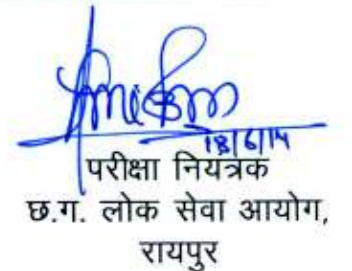 18/6/14
परीक्षा नियत्रक
छ.ग. लोक सेवा आयोग,
रायपुर